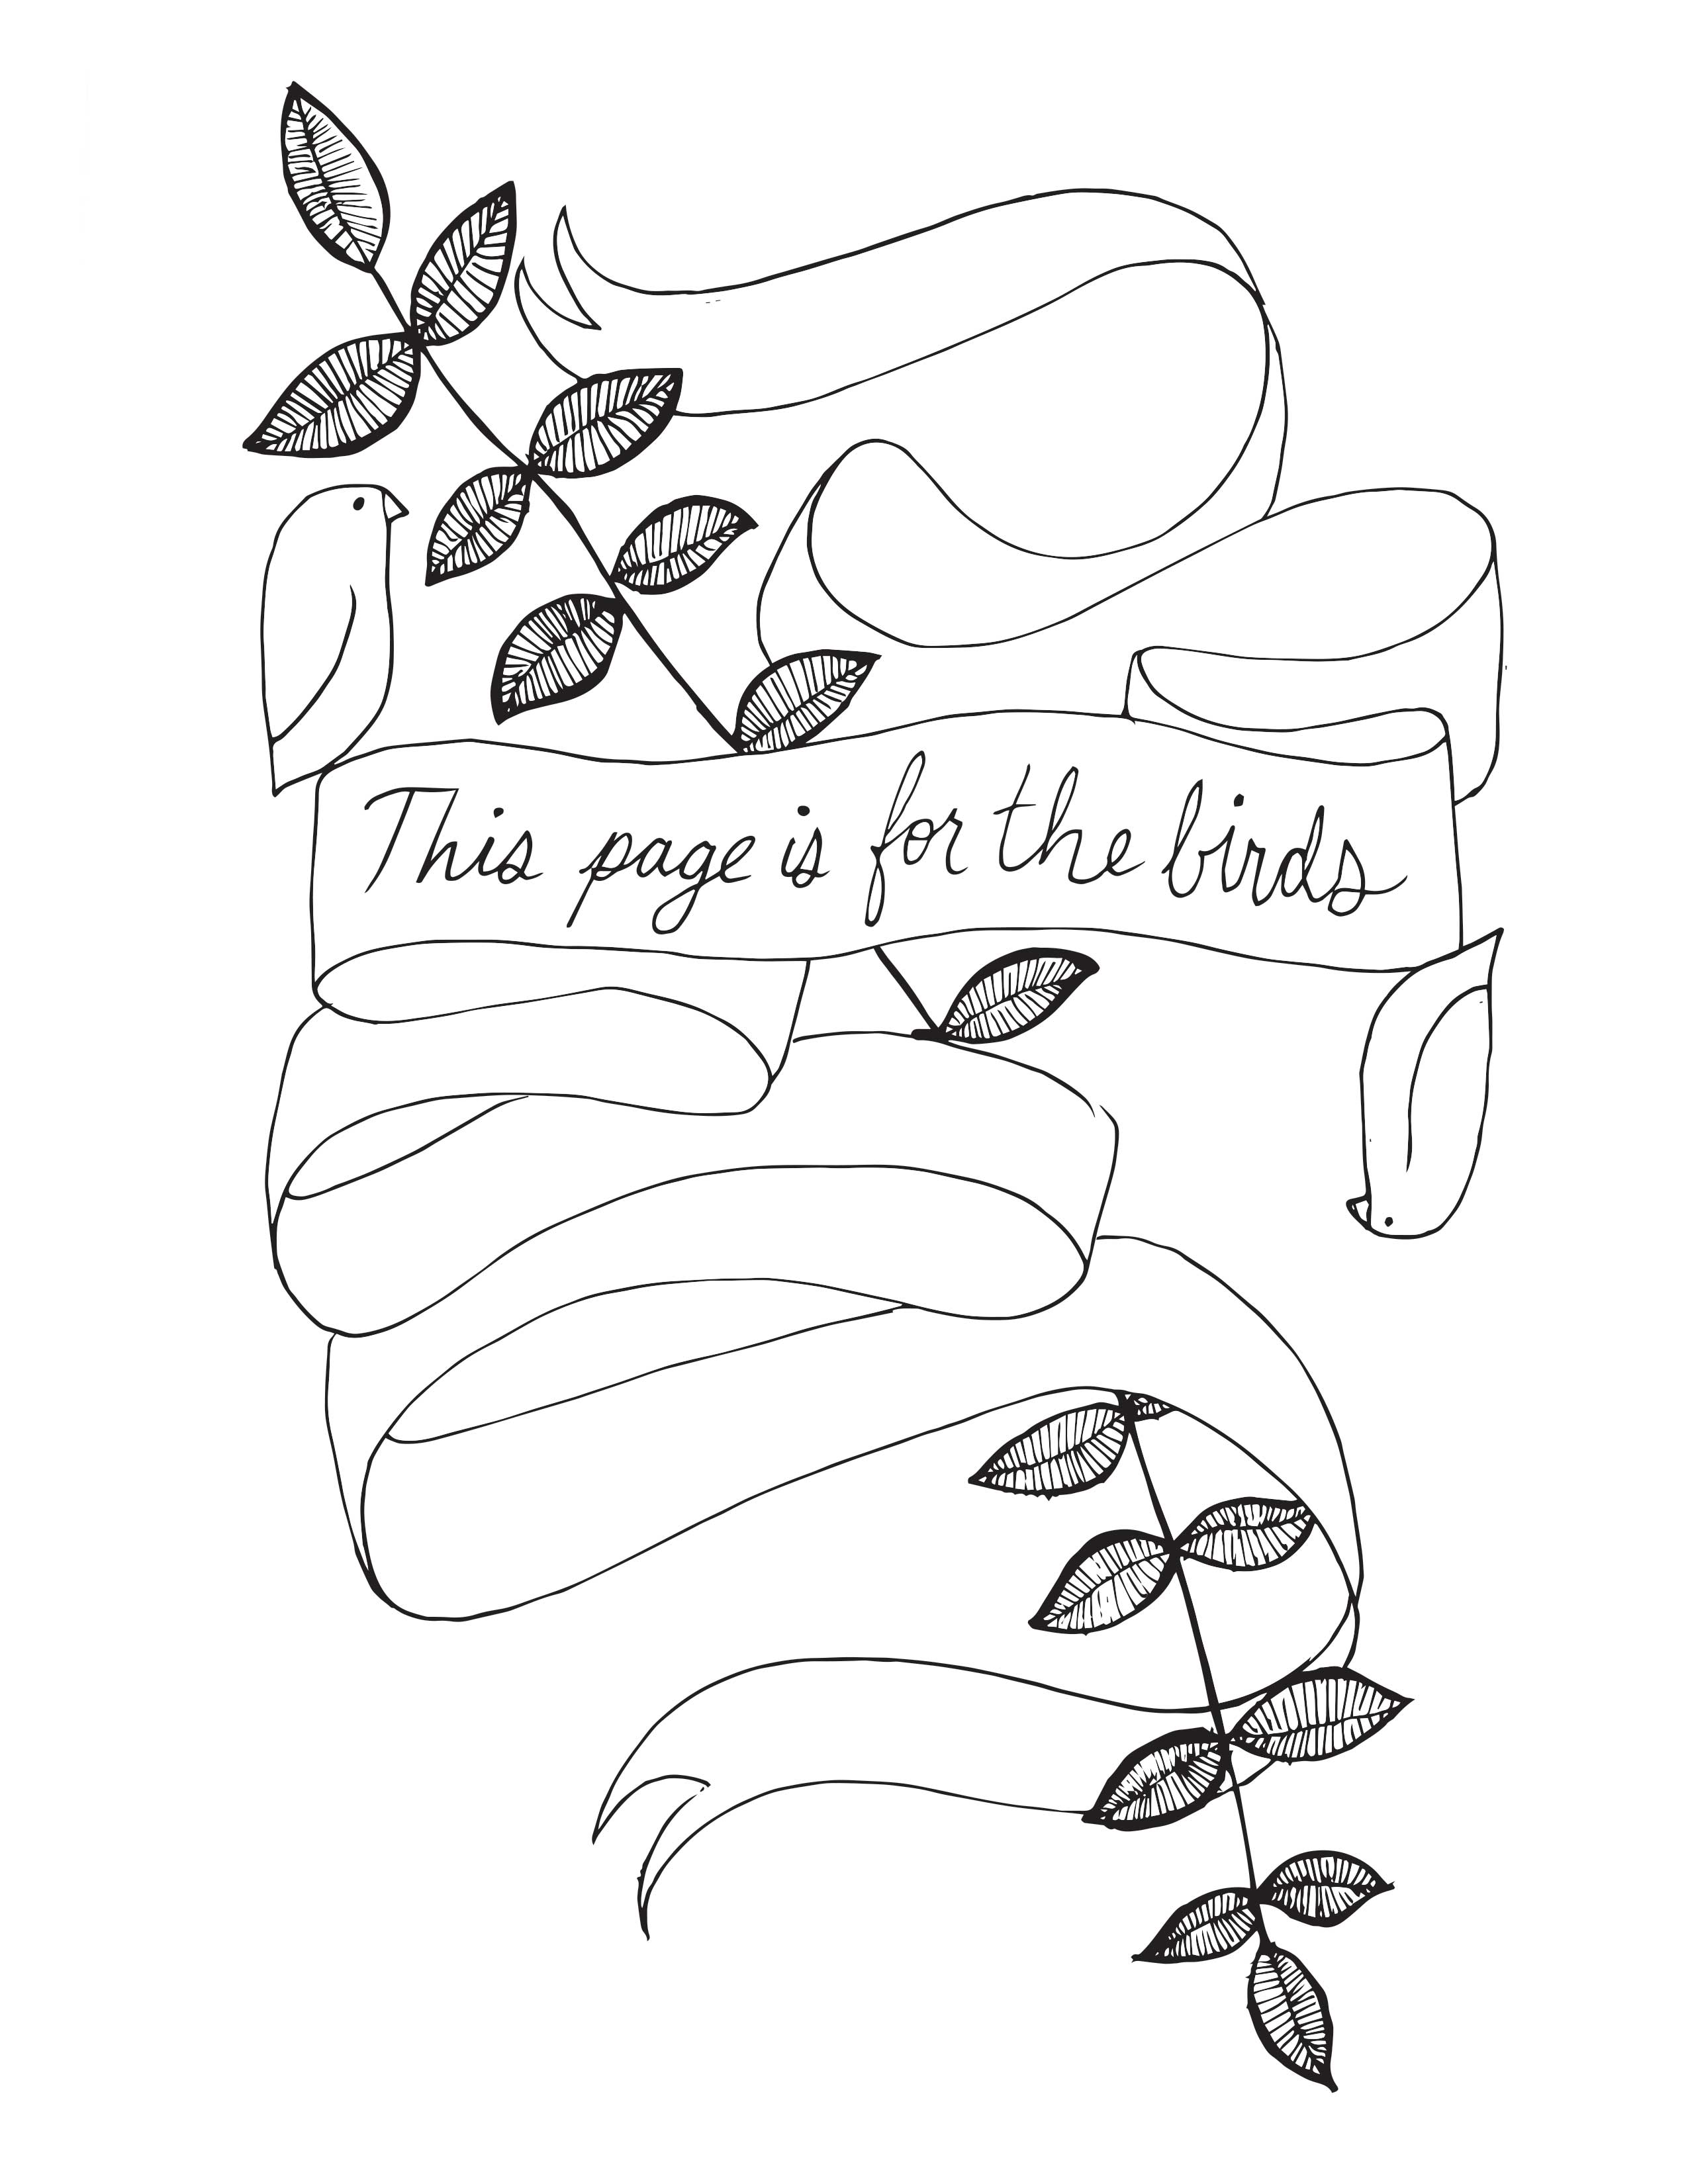 This page is for the birds